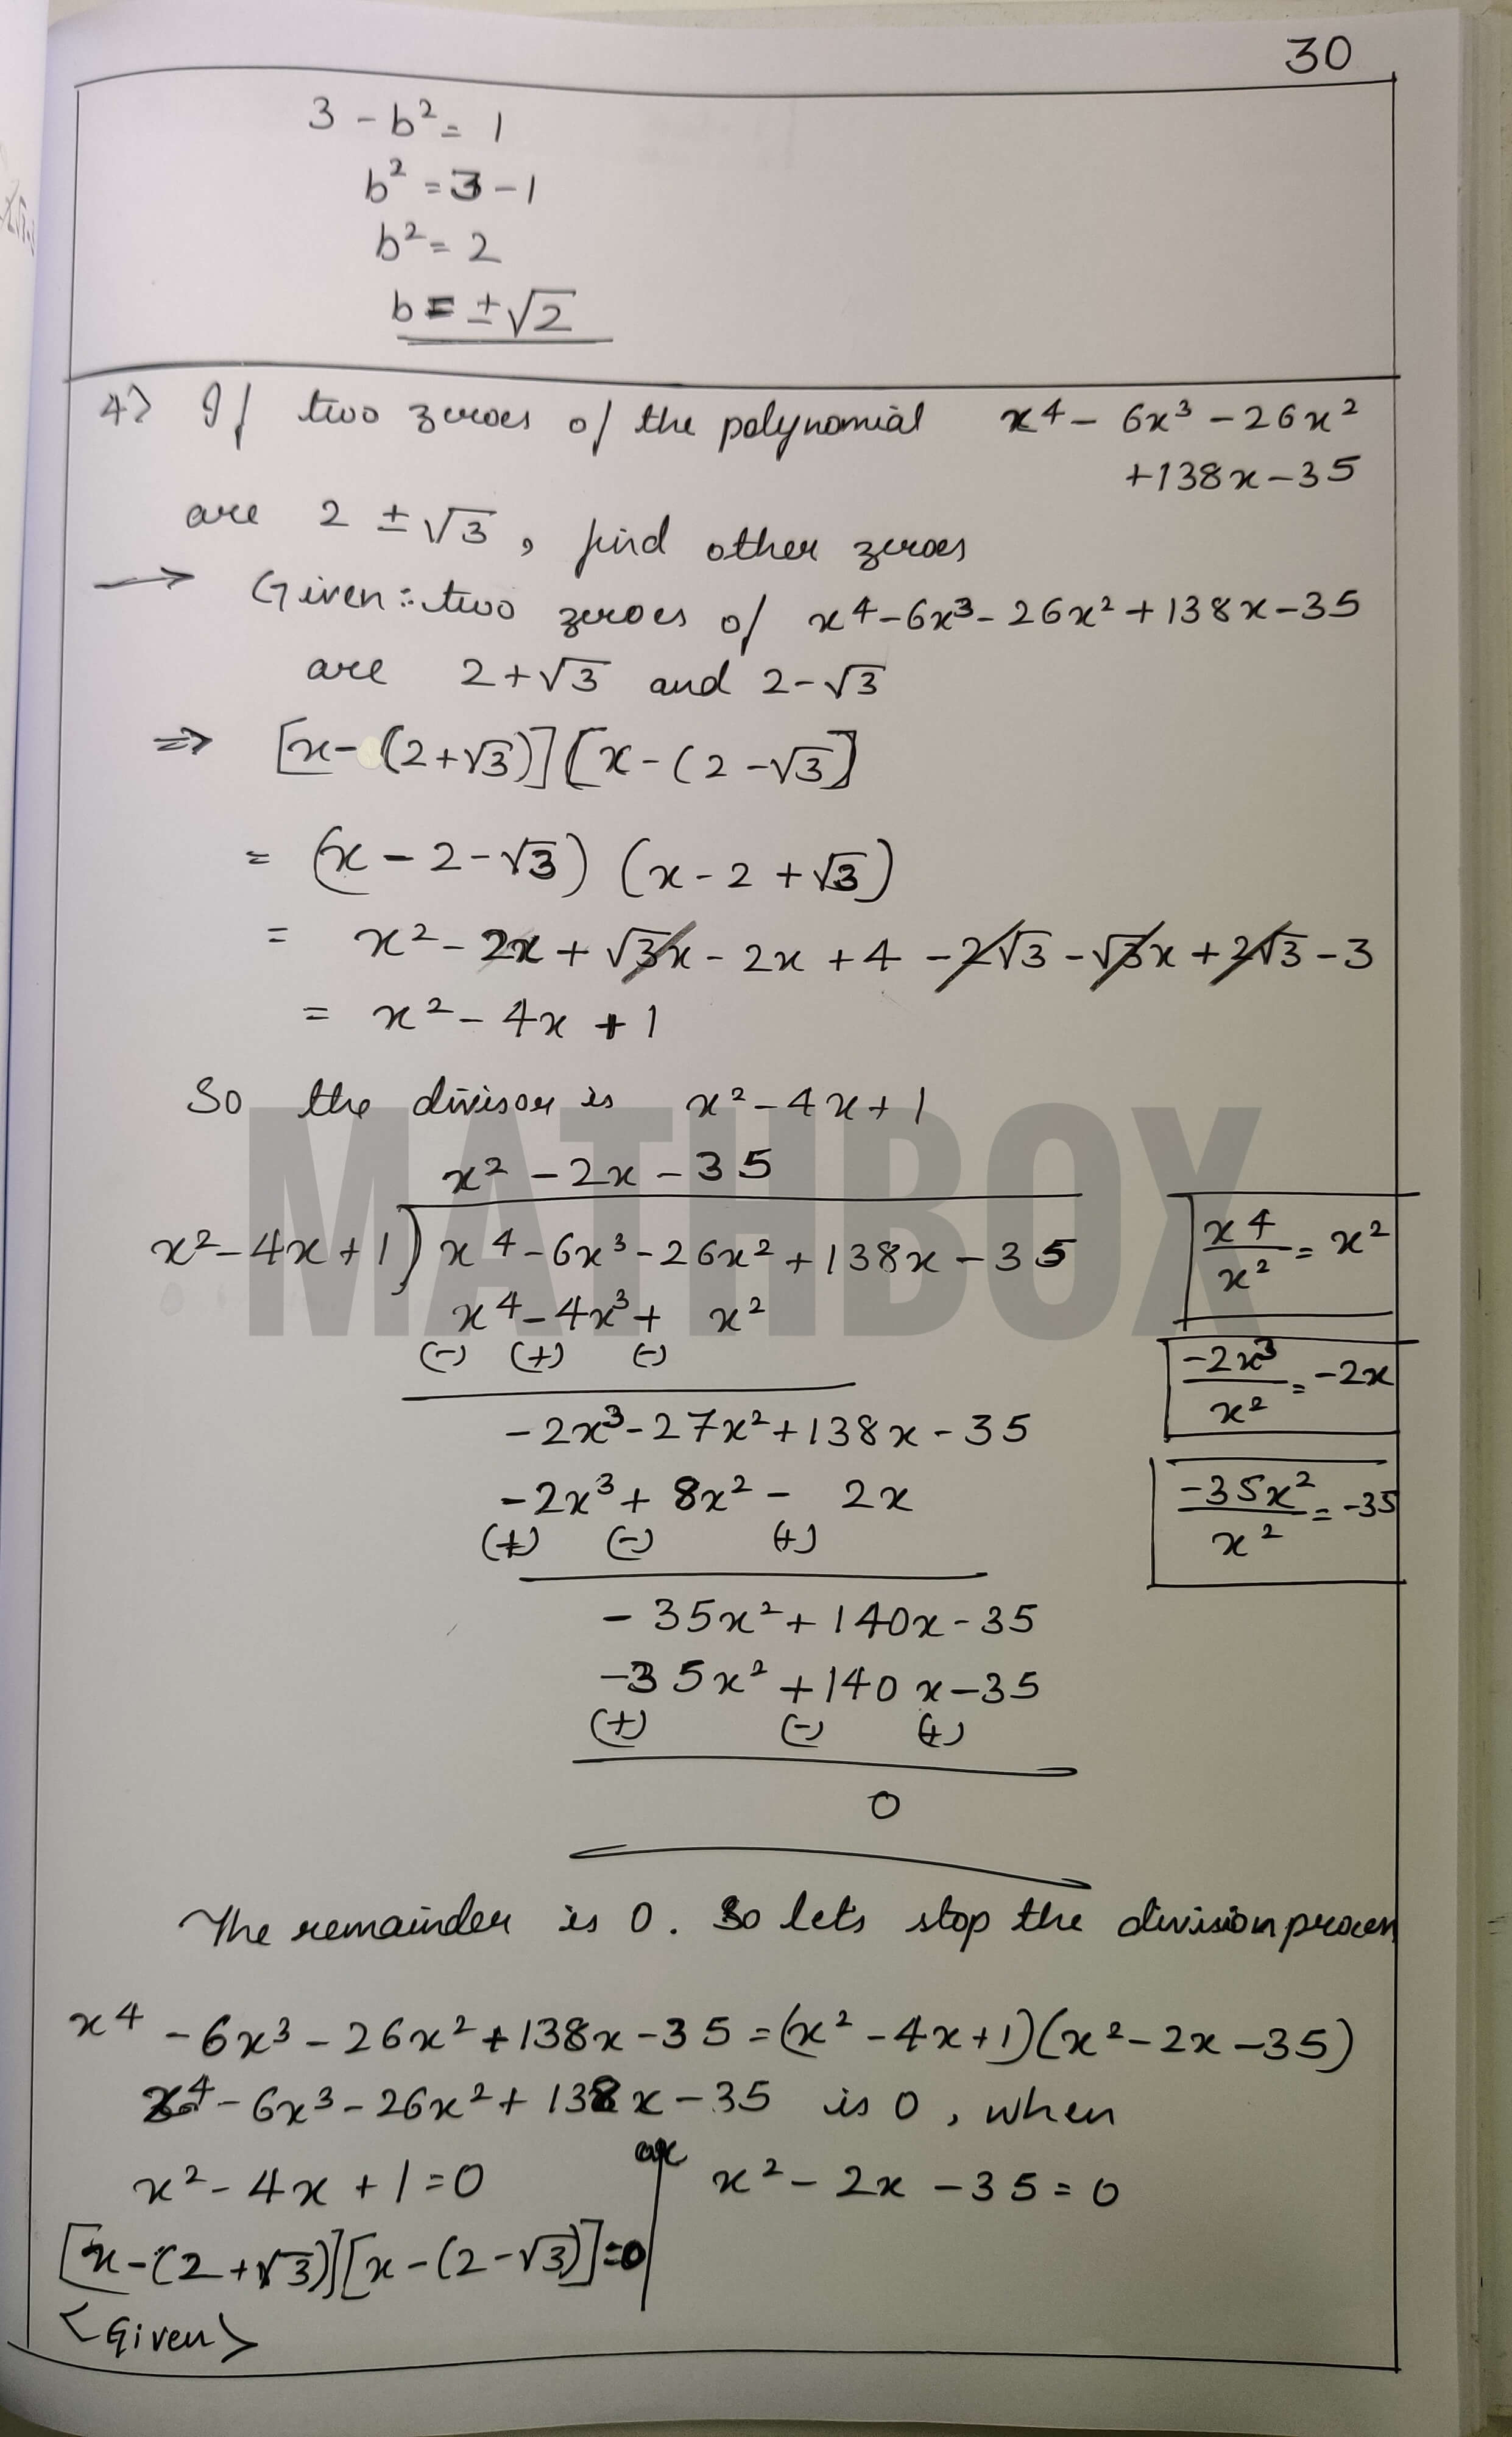 30
3 - b² = 1
b² = 3 - 1
b² = 2
b = ±√2
4> If two zeroes of the polynomial x⁴ - 6x³ - 26x²
+138x - 35
are 2 ± √3, find other zeroes
→ Given: two zeroes of x⁴ - 6x³ - 26x² + 138x - 35
are 2+√3 and 2-√3
⇒ [x - (2+√3)] [x - (2 - √3]
= (x - 2 - √3) (x - 2 + √3)
= x² - 2x + √3x - 2x + 4 - 2√3 - √3x + 2√3 - 3
= x² - 4x + 1
So the divisor is x² - 4x + 1
MATHBOX
x² - 2x - 35
x² - 4x + 1) x⁴ - 6x³ - 26x² + 138x - 35
x⁴/x² = x²
x⁴ - 4x³ + x²
(-) (+) (-)
-2x³/x² = -2x
-2x³ - 27x² + 138x - 35
-2x³ + 8x² - 2x
-35x²/x² = -35
(+) (-) (+)
- 35x² + 140x - 35
-35x² + 140x - 35
(+) (-) (+)
0
The remainder is 0. So lets stop the division process
x⁴ - 6x³ - 26x² + 138x - 35 = (x² - 4x + 1)(x² - 2x - 35)
x⁴ - 6x³ - 26x² + 138x - 35 is 0, when
x² - 4x + 1 = 0 or x² - 2x - 35 = 0
[x - (2 + √3)] [x - (2 - √3)] = 0
<Given>